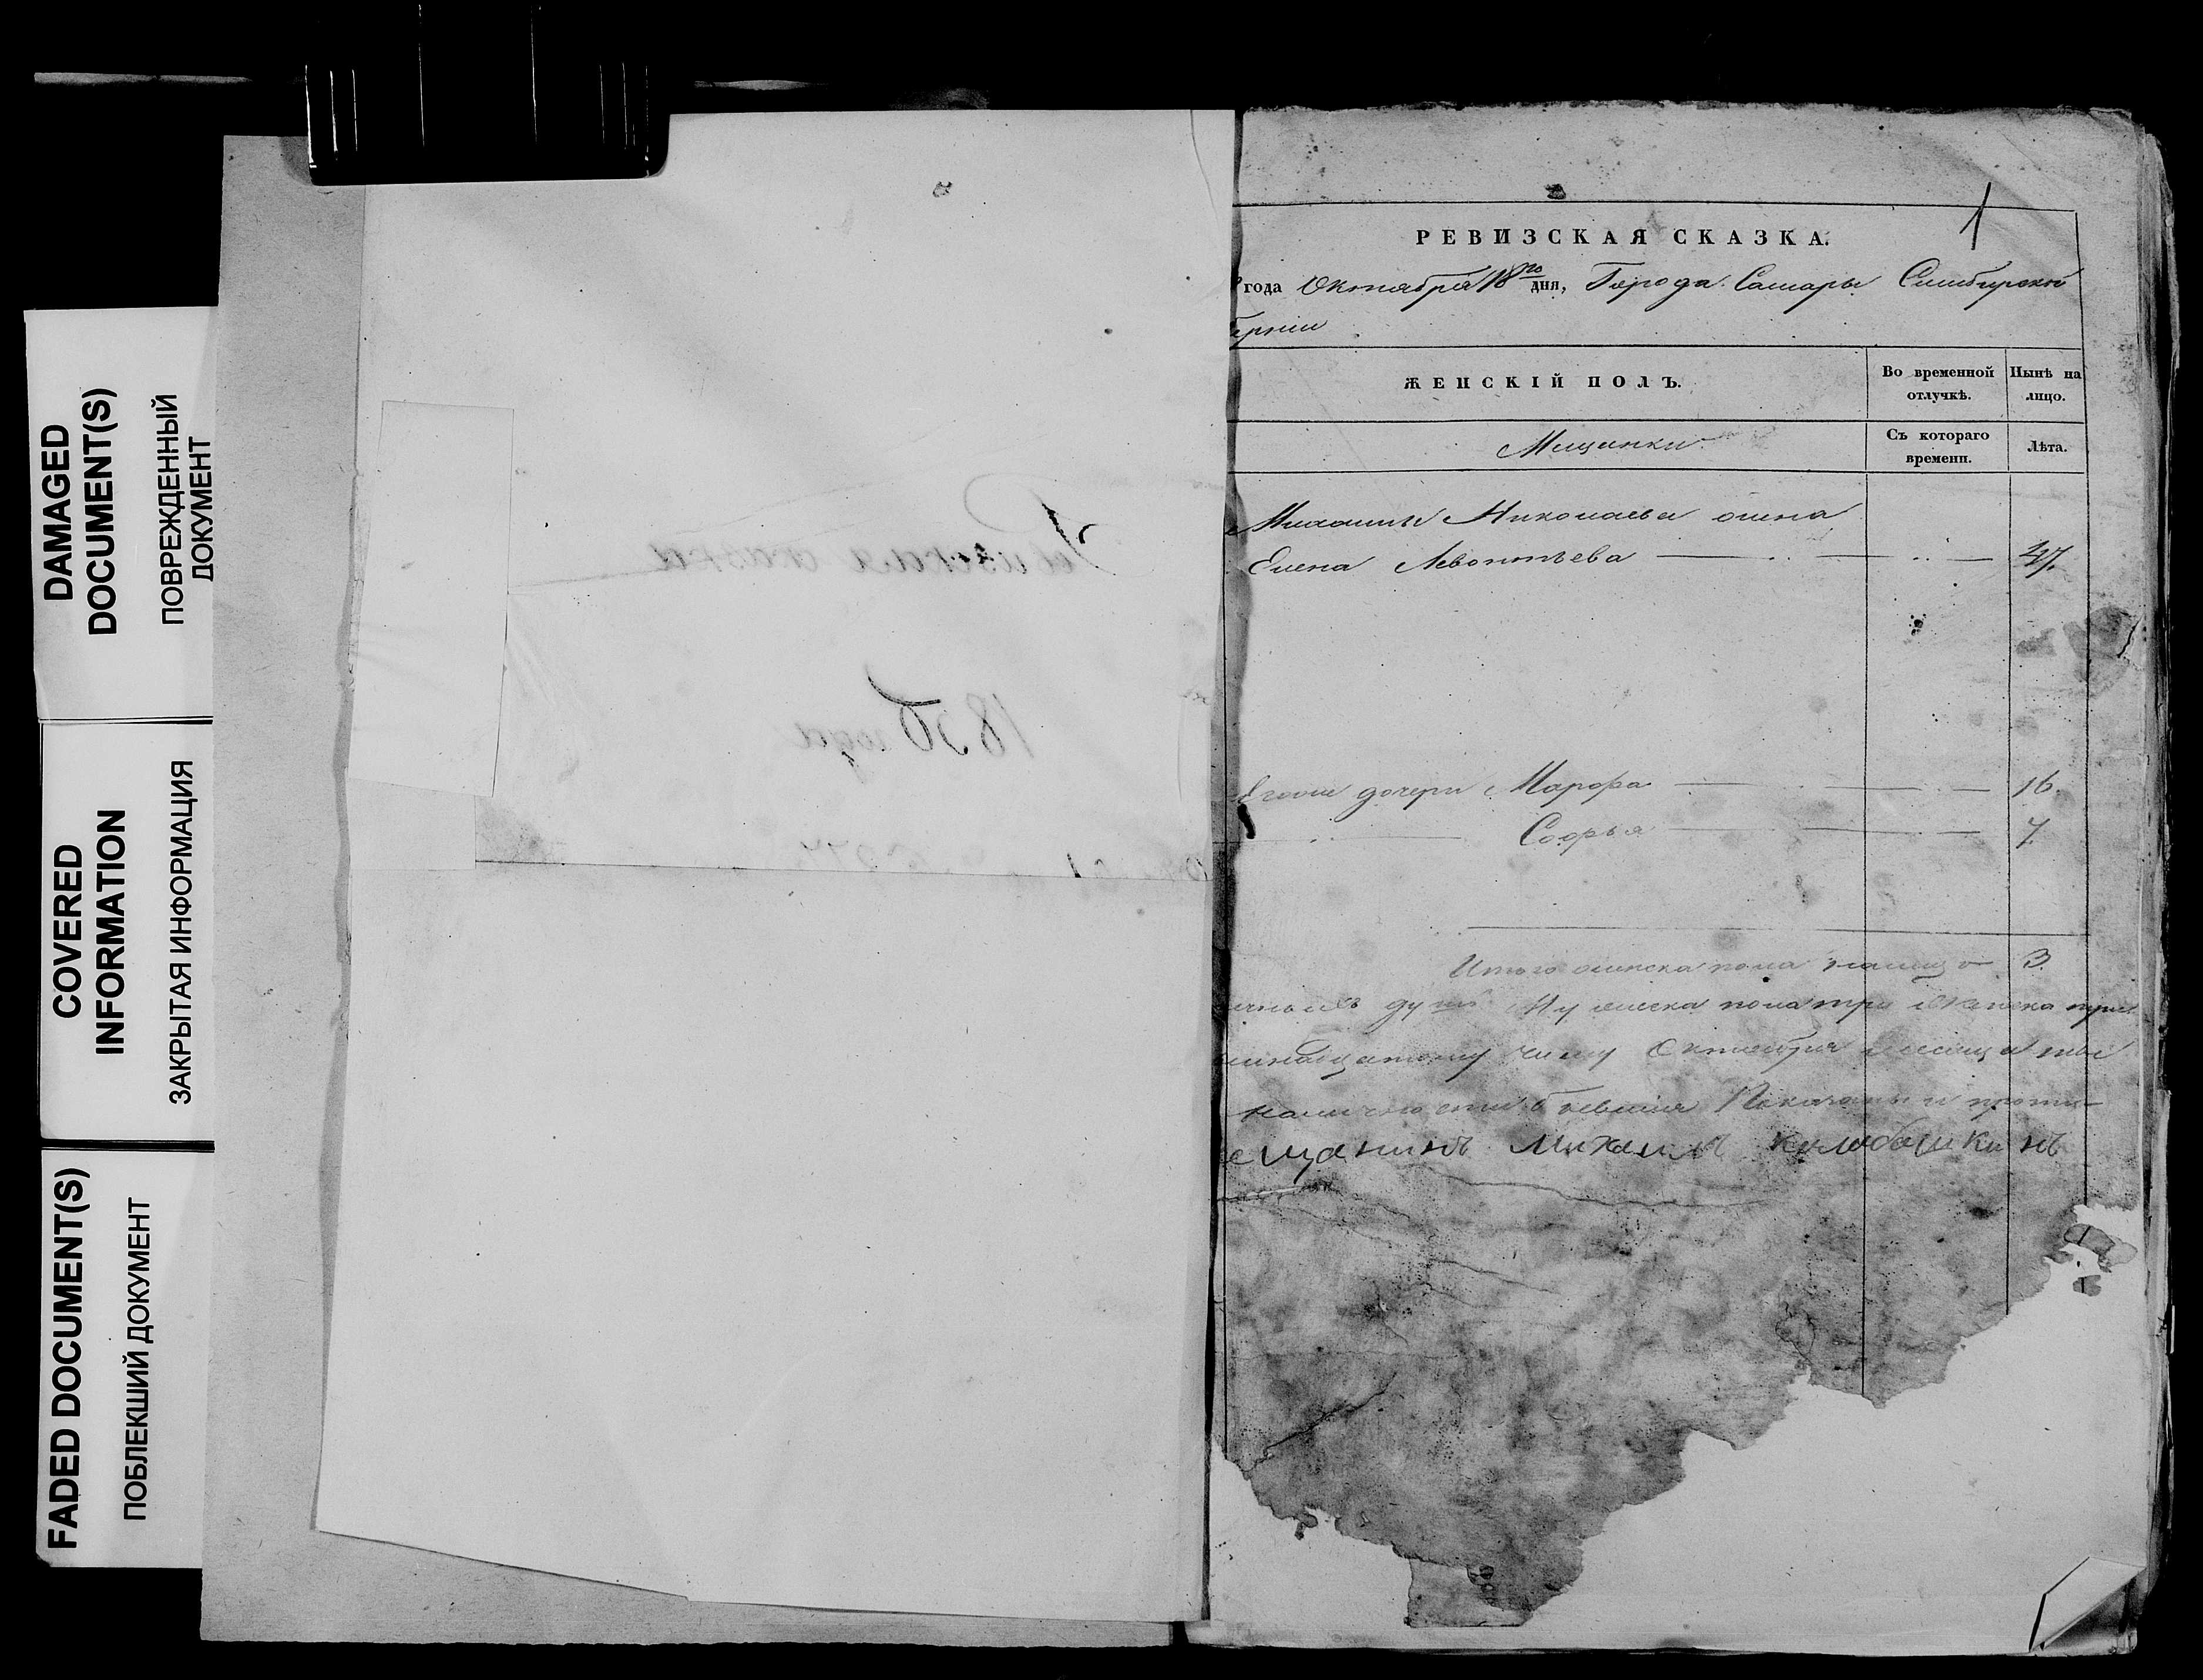 DAMAGED
DOCUMENT(S)
ПОВРЕЖДЕННЫЙ
ДОКУМЕНТ
COVERED
INFORMATION
ЗАКРЫТАЯ ИНФОРМАЦИЯ
FADED DOCUMENT(S)
ПОБЛЕКШИЙ ДОКУМЕНТ
Ревизская сказка
1850 года
1
РЕВИЗСКАЯ СКАЗКА.
года Октября 18го дня, Города Самары Симбирской
ернии
ЖЕНСКІЙ ПОЛЪ.
Во временной
отлучкѣ.
Нынѣ на
лицо.
Мещанки
Съ котораго
времени.
Лѣта.
Михаилы Николаева жена
Елена Левонтьева 47.
Егоже дочери Марфа 16.
Софья 7.
Итого женска пола налицо 3.
душъ Мужеска пола три женска три
числу Октября месяца
Показаны и
ещанинъ Михаилъ Колобашкинъ